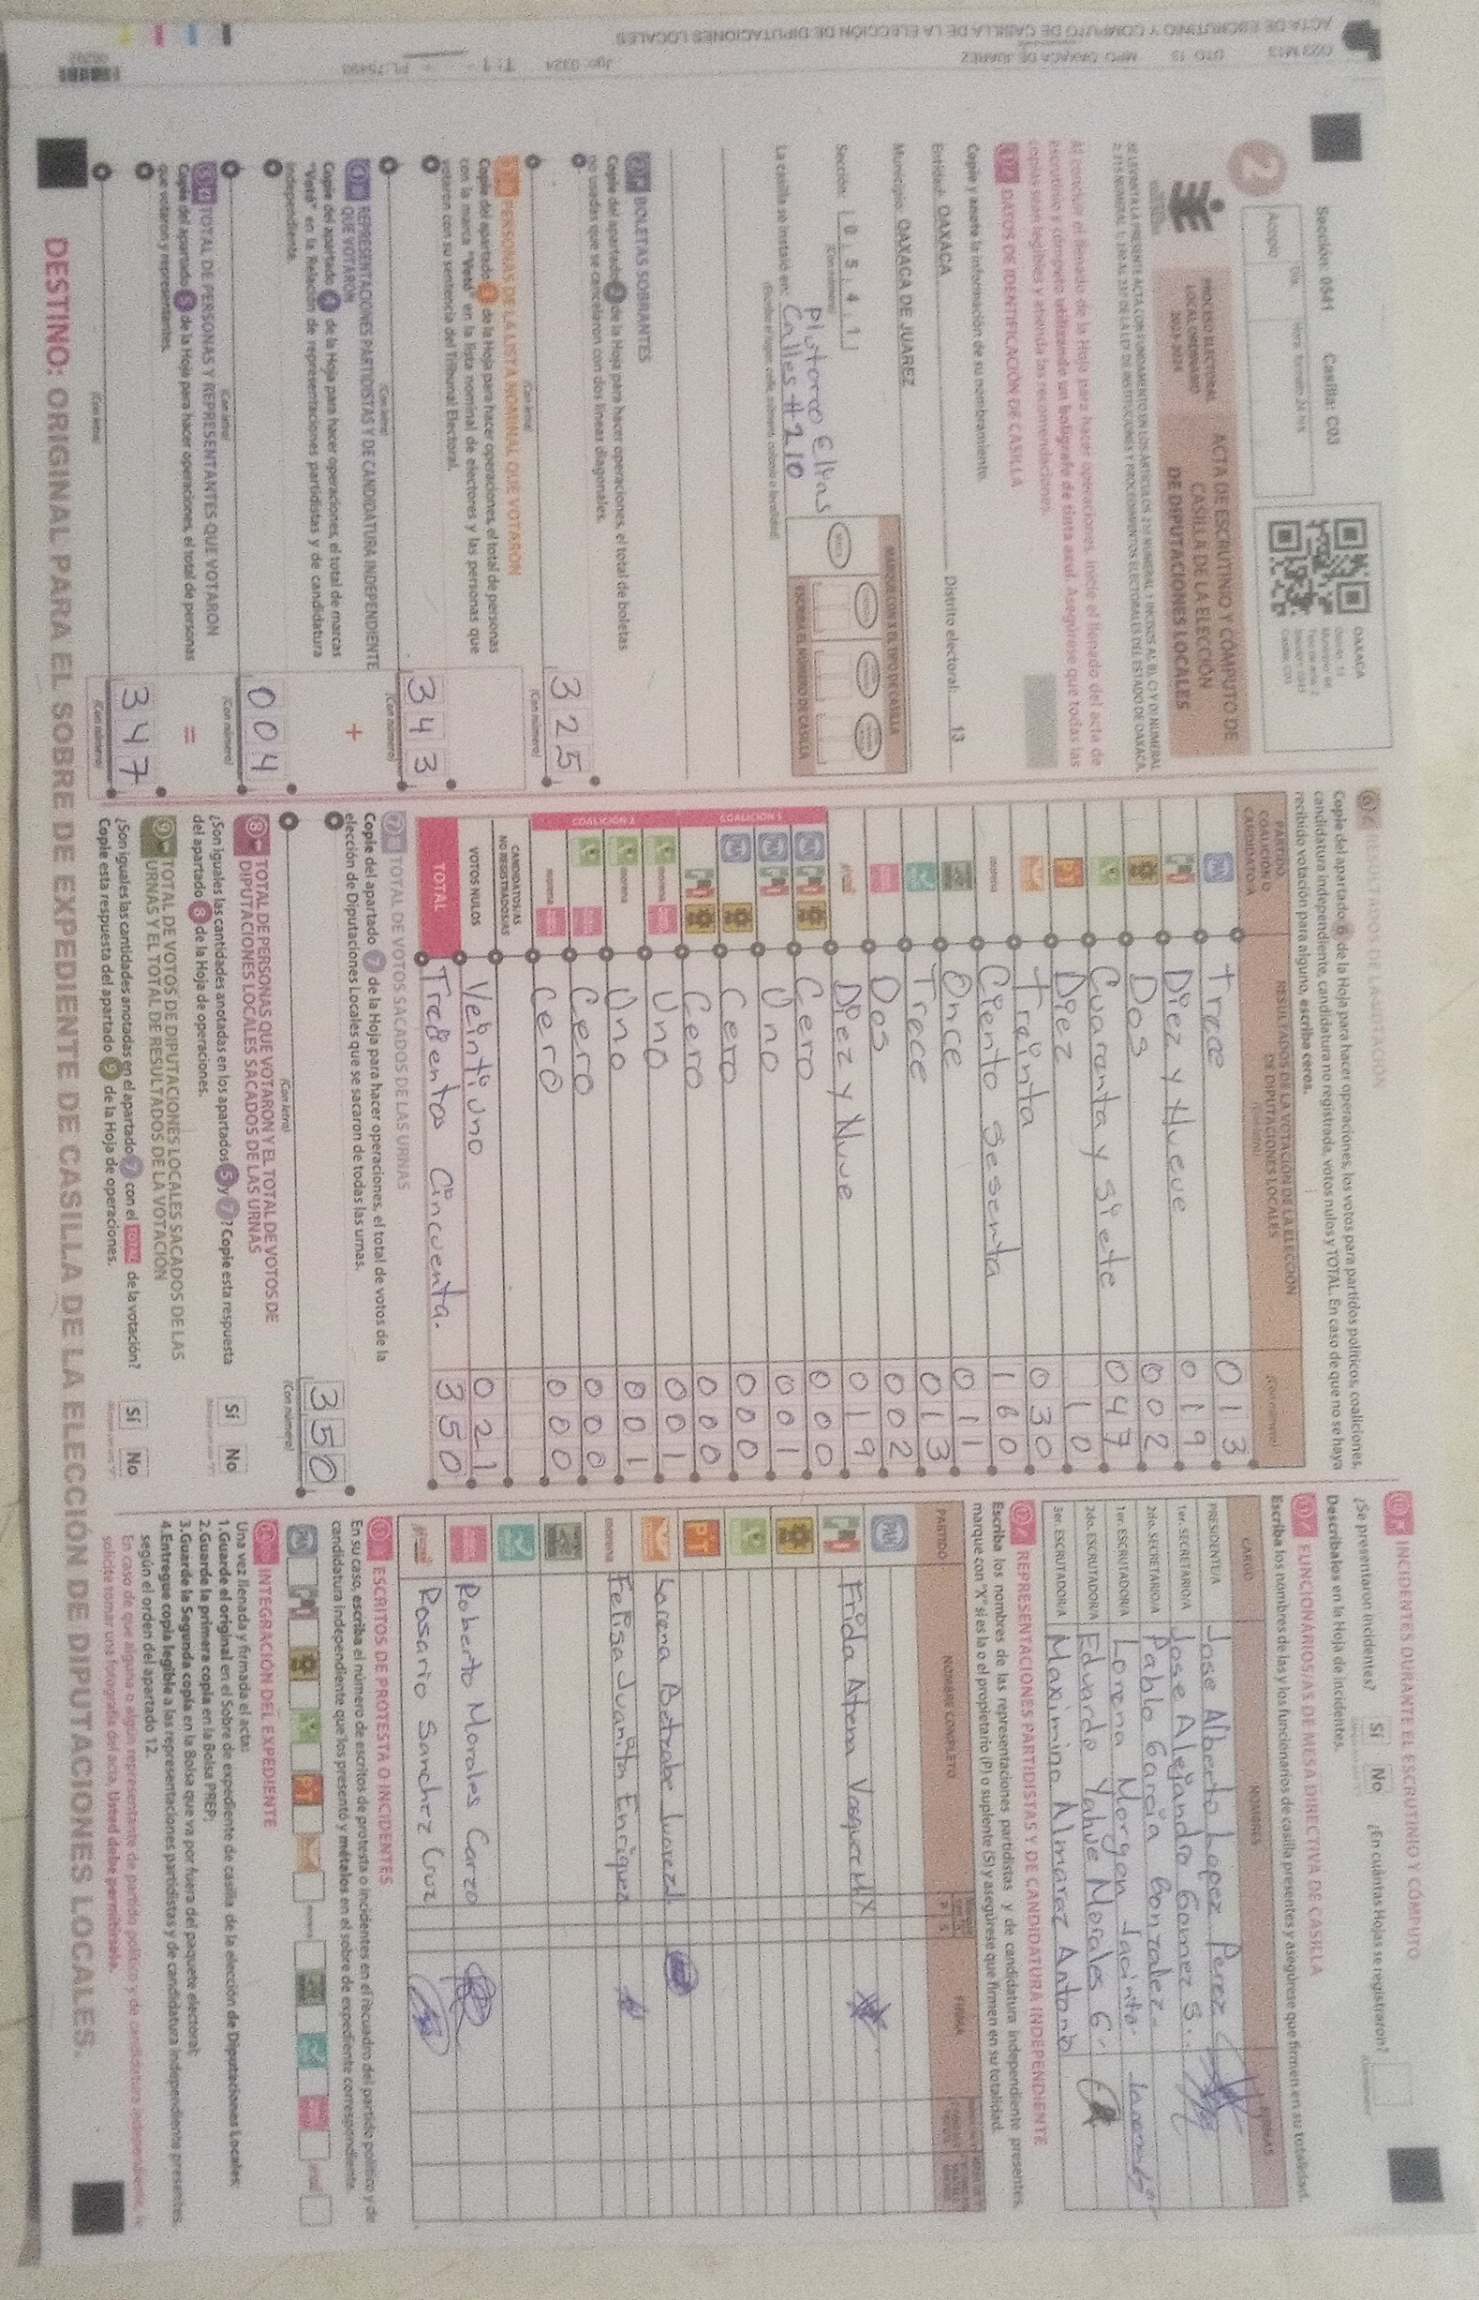 Sección: 0541 Casilla: C03
OAXACA
2
Acopio
Día
PROCESO ELECTORAL
LOCAL ORDINARIO
2023-2024
ACTA DE ESCRUTINIO Y CÓMPUTO DE
CASILLA DE LA ELECCIÓN
DE DIPUTACIONES LOCALES
Al concluir el llenado de la Hoja para hacer operaciones, inicie el llenado del acta de
escrutinio y cómputo utilizando un bolígrafo de tinta azul. Asegúrese que todas las
copias sean legibles y atienda las recomendaciones.
1 DATOS DE IDENTIFICACIÓN DE CASILLA
Copie y anote la información de su nombramiento.
Entidad: OAXACA Distrito electoral: 13
Municipio: OAXACA DE JUAREZ
Sección: 0541
(Con número)
MARQUE CON X EL TIPO DE CASILLA
ESCRIBA EL NÚMERO DE CASILLA
La casilla se instaló en: Plutarco Elyas
Calles #210
2 BOLETAS SOBRANTES
Copie del apartado 2 de la Hoja para hacer operaciones, el total de boletas
no usadas que se cancelaron con dos líneas diagonales.
325
(Con letra) (Con número)
3 PERSONAS DE LA LISTA NOMINAL QUE VOTARON
Copie del apartado 3 de la Hoja para hacer operaciones, el total de personas
con la marca "Votó" en la lista nominal de electores y las personas que
votaron con su sentencia del Tribunal Electoral.
343
(Con letra) (Con número)
4 REPRESENTACIONES PARTIDISTAS Y DE CANDIDATURA INDEPENDIENTE
QUE VOTARON
Copie del apartado 4 de la Hoja para hacer operaciones, el total de marcas
"Votó" en la Relación de representaciones partidistas y de candidatura
independiente.
+
004
(Con letra) (Con número)
5 TOTAL DE PERSONAS Y REPRESENTANTES QUE VOTARON
Copie del apartado 5 de la Hoja para hacer operaciones, el total de personas
que votaron y representantes.
=
347
(Con letra) (Con número)
6 RESULTADOS DE LA VOTACIÓN
Copie del apartado 6 de la Hoja para hacer operaciones, los votos para partidos políticos, coaliciones,
candidatura independiente, candidatura no registrada, votos nulos y TOTAL. En caso de que no se haya
recibido votación para alguno, escriba ceros.
PARTIDO,
COALICIÓN O
CANDIDATO/A
RESULTADOS DE LA VOTACIÓN DE LA ELECCIÓN
DE DIPUTACIONES LOCALES
PAN Trece 013
PRI Diez y Nueve 019
Dos 002
Cuarenta y Siete 047
PT Diez 10
Treinta 030
morena Ciento Sesenta 160
Once 011
Trece 013
Dos 002
Diez y Nueve 019
COALICIÓN 1
Cero 000
Uno 001
Cero 000
Cero 000
COALICIÓN 2
Uno 001
Uno 001
Cero 000
Cero 000
CANDIDATOS/AS
NO REGISTRADOS/AS
VOTOS NULOS Veintiuno 021
TOTAL Tresientos Cincuenta. 350
7 TOTAL DE VOTOS SACADOS DE LAS URNAS
Copie del apartado 7 de la Hoja para hacer operaciones, el total de votos de la
elección de Diputaciones Locales que se sacaron de todas las urnas.
350
(Con letra) (Con número)
8 TOTAL DE PERSONAS QUE VOTARON Y EL TOTAL DE VOTOS DE
DIPUTACIONES LOCALES SACADOS DE LAS URNAS
¿Son iguales las cantidades anotadas en los apartados 5 y 7? Copie esta respuesta
del apartado 8 de la Hoja de operaciones.
Sí No
9 TOTAL DE VOTOS DE DIPUTACIONES LOCALES SACADOS DE LAS
URNAS Y EL TOTAL DE RESULTADOS DE LA VOTACIÓN
¿Son iguales las cantidades anotadas en el apartado 7 con el TOTAL de la votación?
Copie esta respuesta del apartado 9 de la Hoja de operaciones.
Sí No
10 INCIDENTES DURANTE EL ESCRUTINIO Y CÓMPUTO
¿Se presentaron incidentes? Sí No ¿En cuántas Hojas se registraron?
Descríbalos en la Hoja de incidentes.
11 FUNCIONARIOS/AS DE MESA DIRECTIVA DE CASILLA
Escriba los nombres de las y los funcionarios de casilla presentes y asegúrese que firmen en su totalidad.
CARGO NOMBRES FIRMAS
PRESIDENTE/A Jose Alberto Lopez Perez
1er. SECRETARIO/A Jose Alejandro Gomez S.
2do. SECRETARIO/A Pablo Garcia Gonzalez
1er. ESCRUTADOR/A Lorena Morgan Jacinto
2do. ESCRUTADOR/A Eduardo Yahve Morales G.
3er. ESCRUTADOR/A Maximino Almaraz Antonio
12 REPRESENTACIONES PARTIDISTAS Y DE CANDIDATURA INDEPENDIENTE
Escriba los nombres de las representaciones partidistas y de candidatura independiente presentes,
marque con "X" si es la o el propietario (P) o suplente (S) y asegúrese que firmen en su totalidad.
PARTIDO NOMBRE COMPLETO P S FIRMA
PAN
PRI Frida Atena Vasquez X
PT
Lorena Betzabe Juarez
morena Felisa Juanita Enriquez
Roberto Morales Carzo
Rosario Sanchez Cruz
13 ESCRITOS DE PROTESTA O INCIDENTES
En su caso, escriba el número de escritos de protesta o incidentes en el recuadro del partido político y de
candidatura independiente que los presentó y métalos en el sobre de expediente correspondiente.
14 INTEGRACIÓN DEL EXPEDIENTE
Una vez llenada y firmada el acta:
1.Guarde el original en el Sobre de expediente de casilla de la elección de Diputaciones Locales;
2.Guarde la primera copia en la Bolsa PREP;
3.Guarde la Segunda copia en la Bolsa que va por fuera del paquete electoral;
4.Entregue copia legible a las representaciones partidistas y de candidatura independiente presentes,
según el orden del apartado 12.
En caso de que alguna o algún representante de partido político y de candidatura independiente, le
solicite tomar una fotografía del acta, Usted debe permitírselo.
DESTINO: ORIGINAL PARA EL SOBRE DE EXPEDIENTE DE CASILLA DE LA ELECCIÓN DE DIPUTACIONES LOCALES.
ACTA DE ESCRUTINIO Y CÓMPUTO DE CASILLA DE LA ELECCIÓN DE DIPUTACIONES LOCALES
DTO 13 MPO OAXACA DE JUAREZ